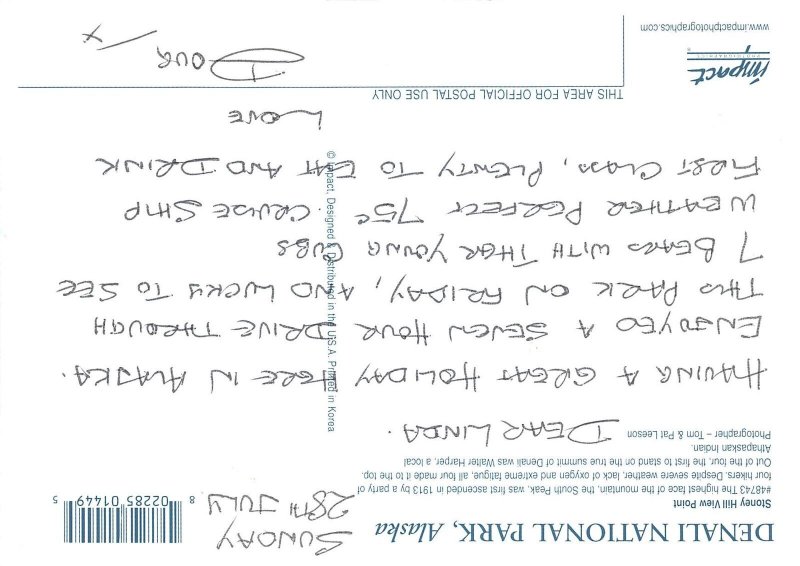 DENALI NATIONAL PARK, Alaska
Stoney Hill View Point
#46743 The highest face of the mountain, the South Peak, was first ascended in 1913 by a party of
four hikers. Despite severe weather, lack of oxygen and extreme fatigue, all four made it to the top.
Out of the four, the first to stand on the true summit of Denali was Walter Harper, a local
Athapaskan Indian.
Photographer – Tom & Pat Leeson
SUNDAY
28TH JULY
8 02285 01449 5
DEAR LINDA.
HAVING A GREAT HOLIDAY HERE IN ALASKA.
ENJOYED A SEVEN HOUR DRIVE THROUGH
THIS PARK ON FRIDAY, AND LUCKY TO SEE
7 BEARS WITH THER YOUNG CUBS
WEATHER PERFECT 75° . CRUISE SHIP
FIRST CLASS, PLENTY TO EAT AND DRINK
LOVE
DOUG
X
© Impact, Designed & Distributed in the U.S.A. Printed in Korea
THIS AREA FOR OFFICIAL POSTAL USE ONLY
impact
PHOTOGRAPHICS
www.impactphotographics.com